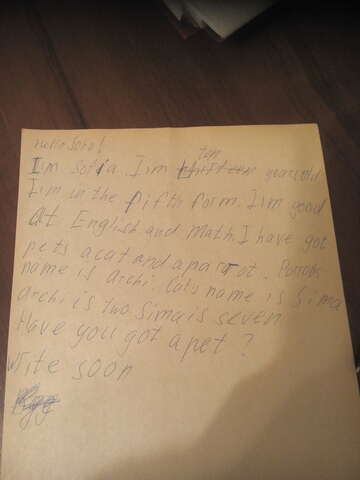 Hello Soho!
I'm Sofia. I'm ten years old
I'm in the fifth form. I'm good
at English and Math. I have got
pets a cat and a parrot. Parrots
name is Archi. Cats name is Sima
Archi is two Sima is seven
Have you got a pet?
Write soon